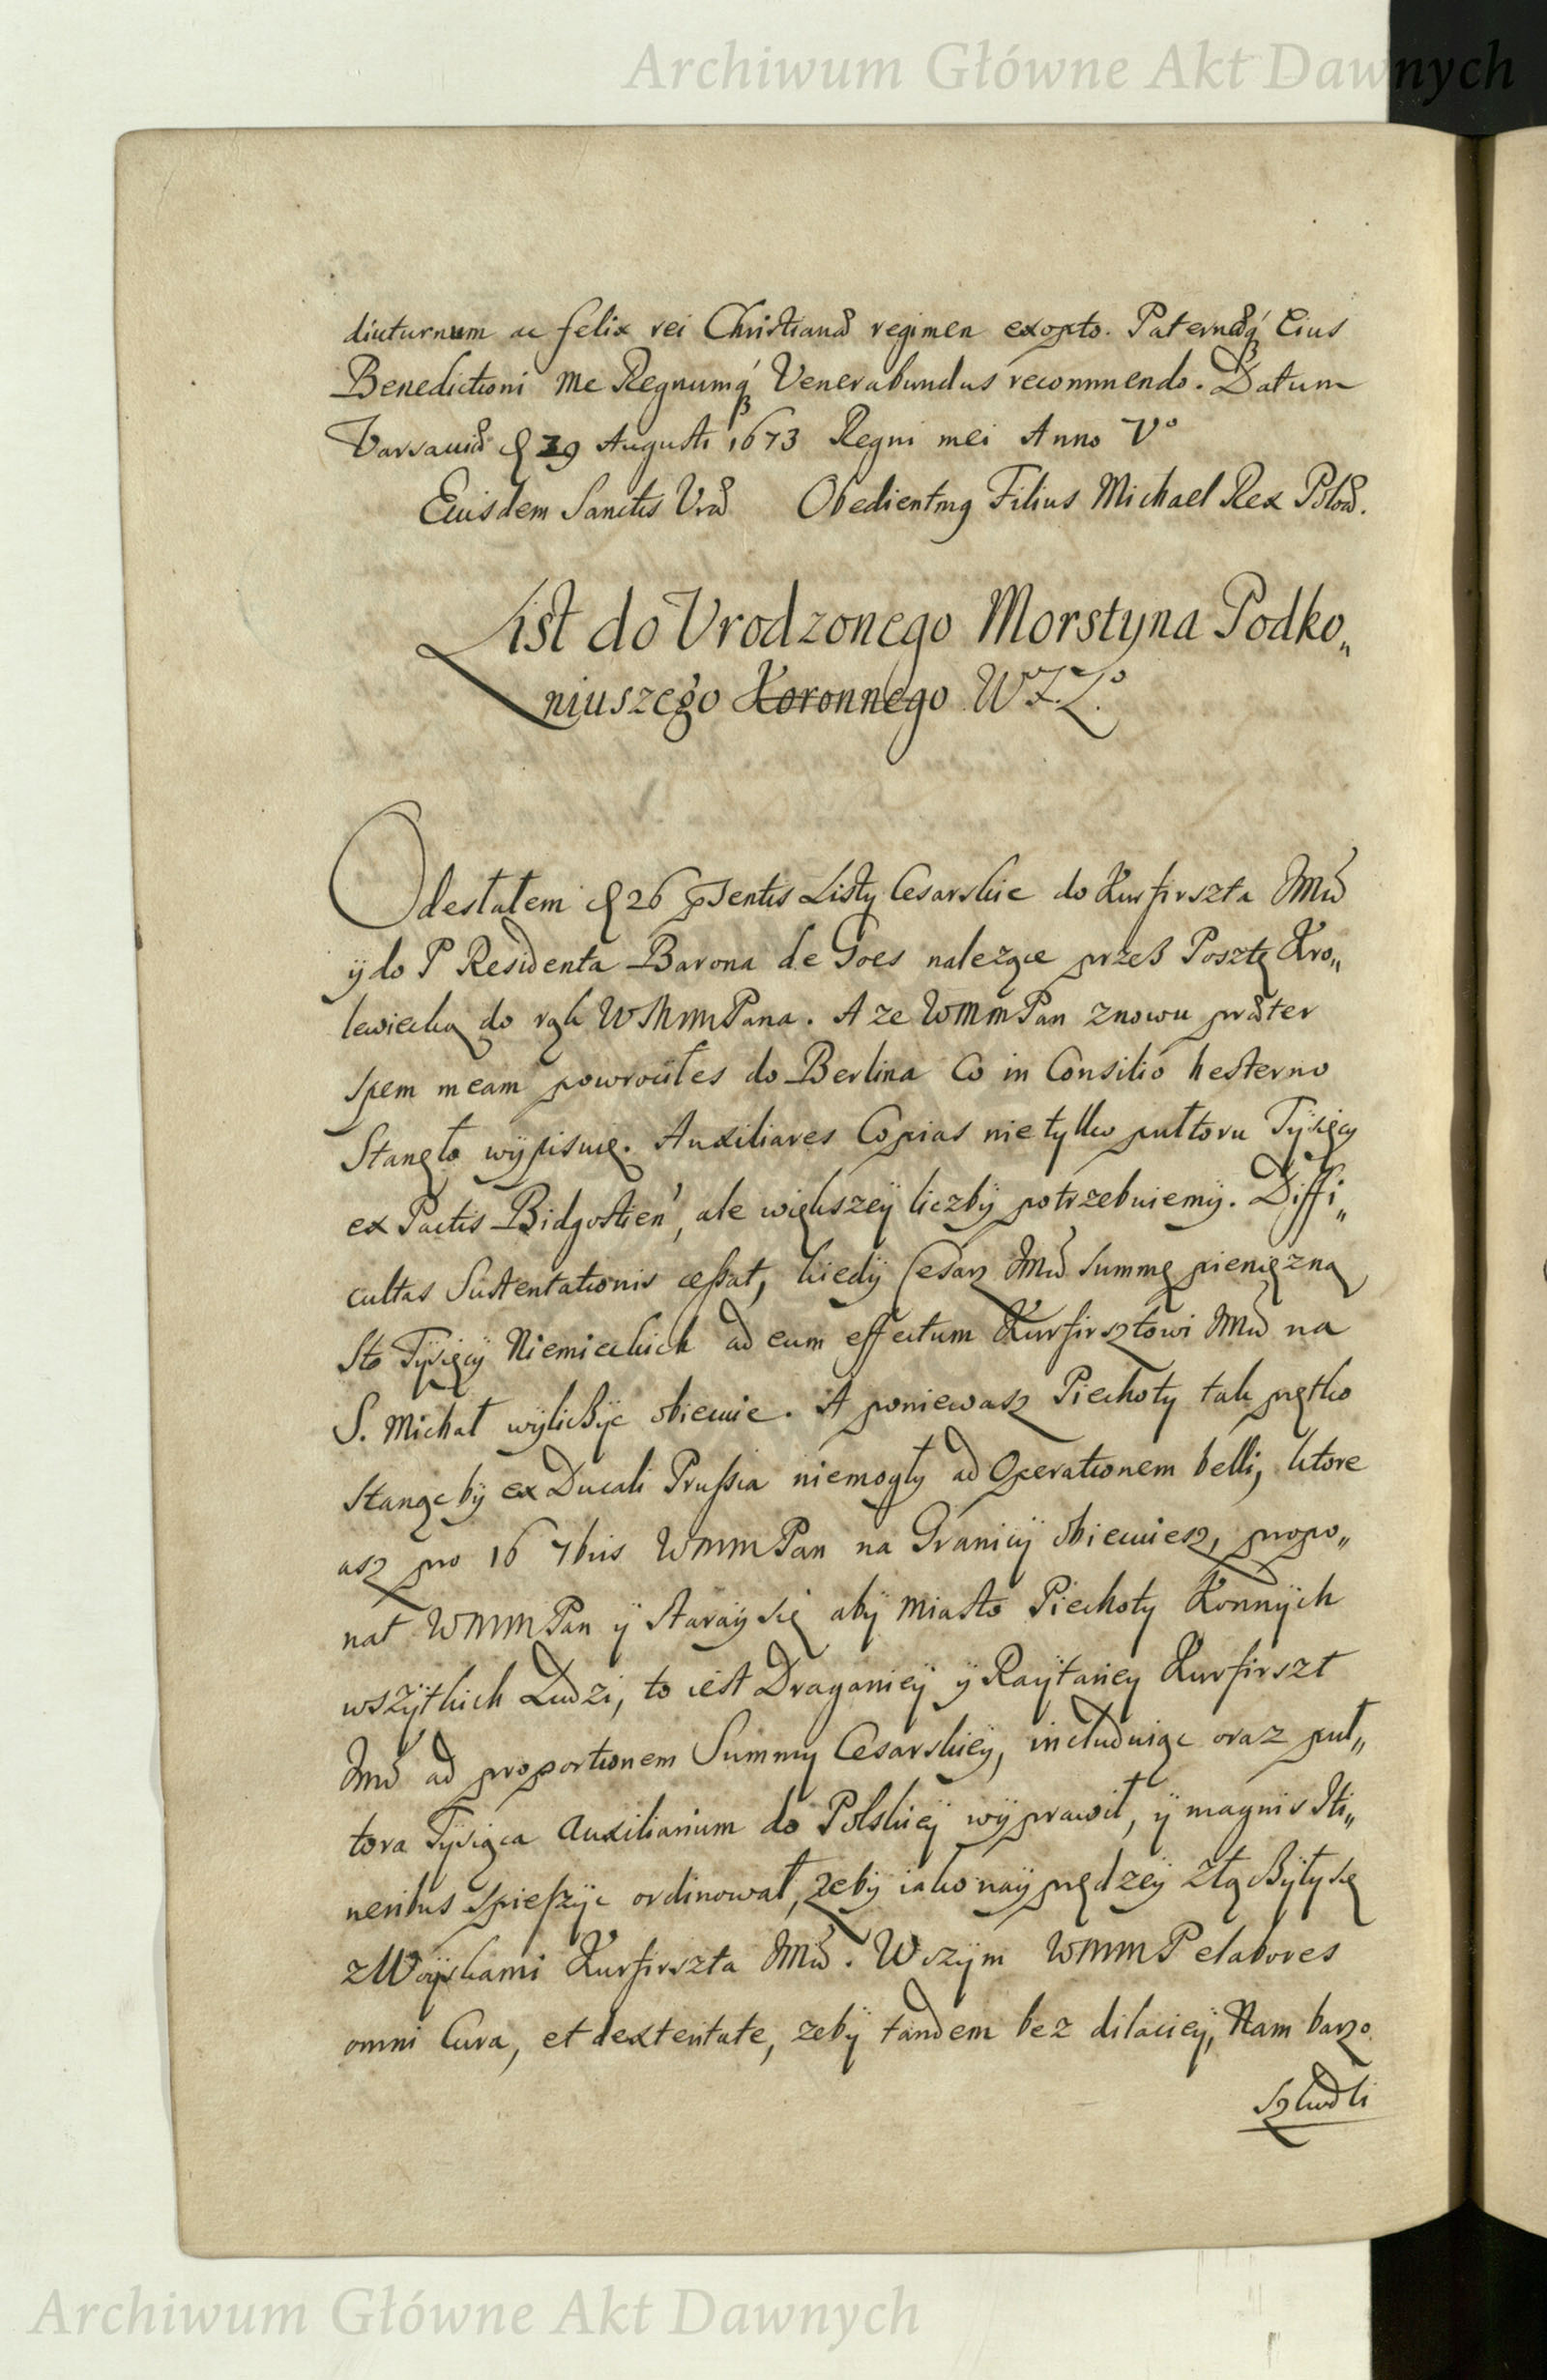 Archiwum Główne Akt Dawnych
diuturnum ac felix rei Christianæ regimen exopto. Paternæq́ꝫ Eius
Benedictioni me Regnumq́ꝫ Venerabundus recommendo. Datum
Varsaviæ d 29 Augusti 1673 Regni mei Anno Vº
Eiusdem Sanctis Vræ Obedientmg Filius Michael Rex Polоæ.
List do Vrodzonego Morstyna Podko„
niuszego Koronnego W.X.L.º
Odesłałem d 26 præsentis Listy Cesarskie do Kurfirszta JMći
ÿ do P Residenta Barona de Goes należące przeß Posztę Kro„
lewiecką do rąk WMMMPana. A ze WMMPan znowu præter
spem meam powrociłes do Berlina Co in Consilio hesterno
Stanęło wÿpisuię. Auxiliares Copias nie tylko pułtoru Tÿsięcy
ex Pactis Bidgostien', ale większeÿ liczbÿ potrzebuiemÿ. Diffi„
cultas Sustentationis cessat, kiedÿ Cesarz JMć summę pieniężną
Sto Tÿsięcÿ Niemieckich ad eum effectum Kurfirsztowi JMći na
S. Michał wÿlicßÿc obiecuie. A poniewasz Piechoty tak prętko
stanącbÿ ex Ducali Prussia niemogły ad Operationem belli, ktore
asz pro 16 7bris WMMPan na Granicÿ obiecuiesz, propo„
nat WMMPan ÿ starаÿ się abÿ miasto Piechoty Konnÿch
wszÿtkich Ludzi, to iest Draganieÿ ÿ Raÿtarieÿ Kurfirszt
JMć ad proportionem Summy Cesarskieÿ, includuiąc oraz puł„
tora Tÿsiąca Auxiliarium do Polskieÿ wÿprawił, ÿ magnis Iti„
neribus spieszÿc ordinował, żebÿ iako naÿprędzeÿ złącßÿłÿ się
z Woÿskami Kurfirszta JMći. W czÿm WMMP elabores
omni Cura, et dexteritate, zebÿ tandem bez dilacieÿ, Nam barzo
szkodli
Archiwum Główne Akt Dawnych